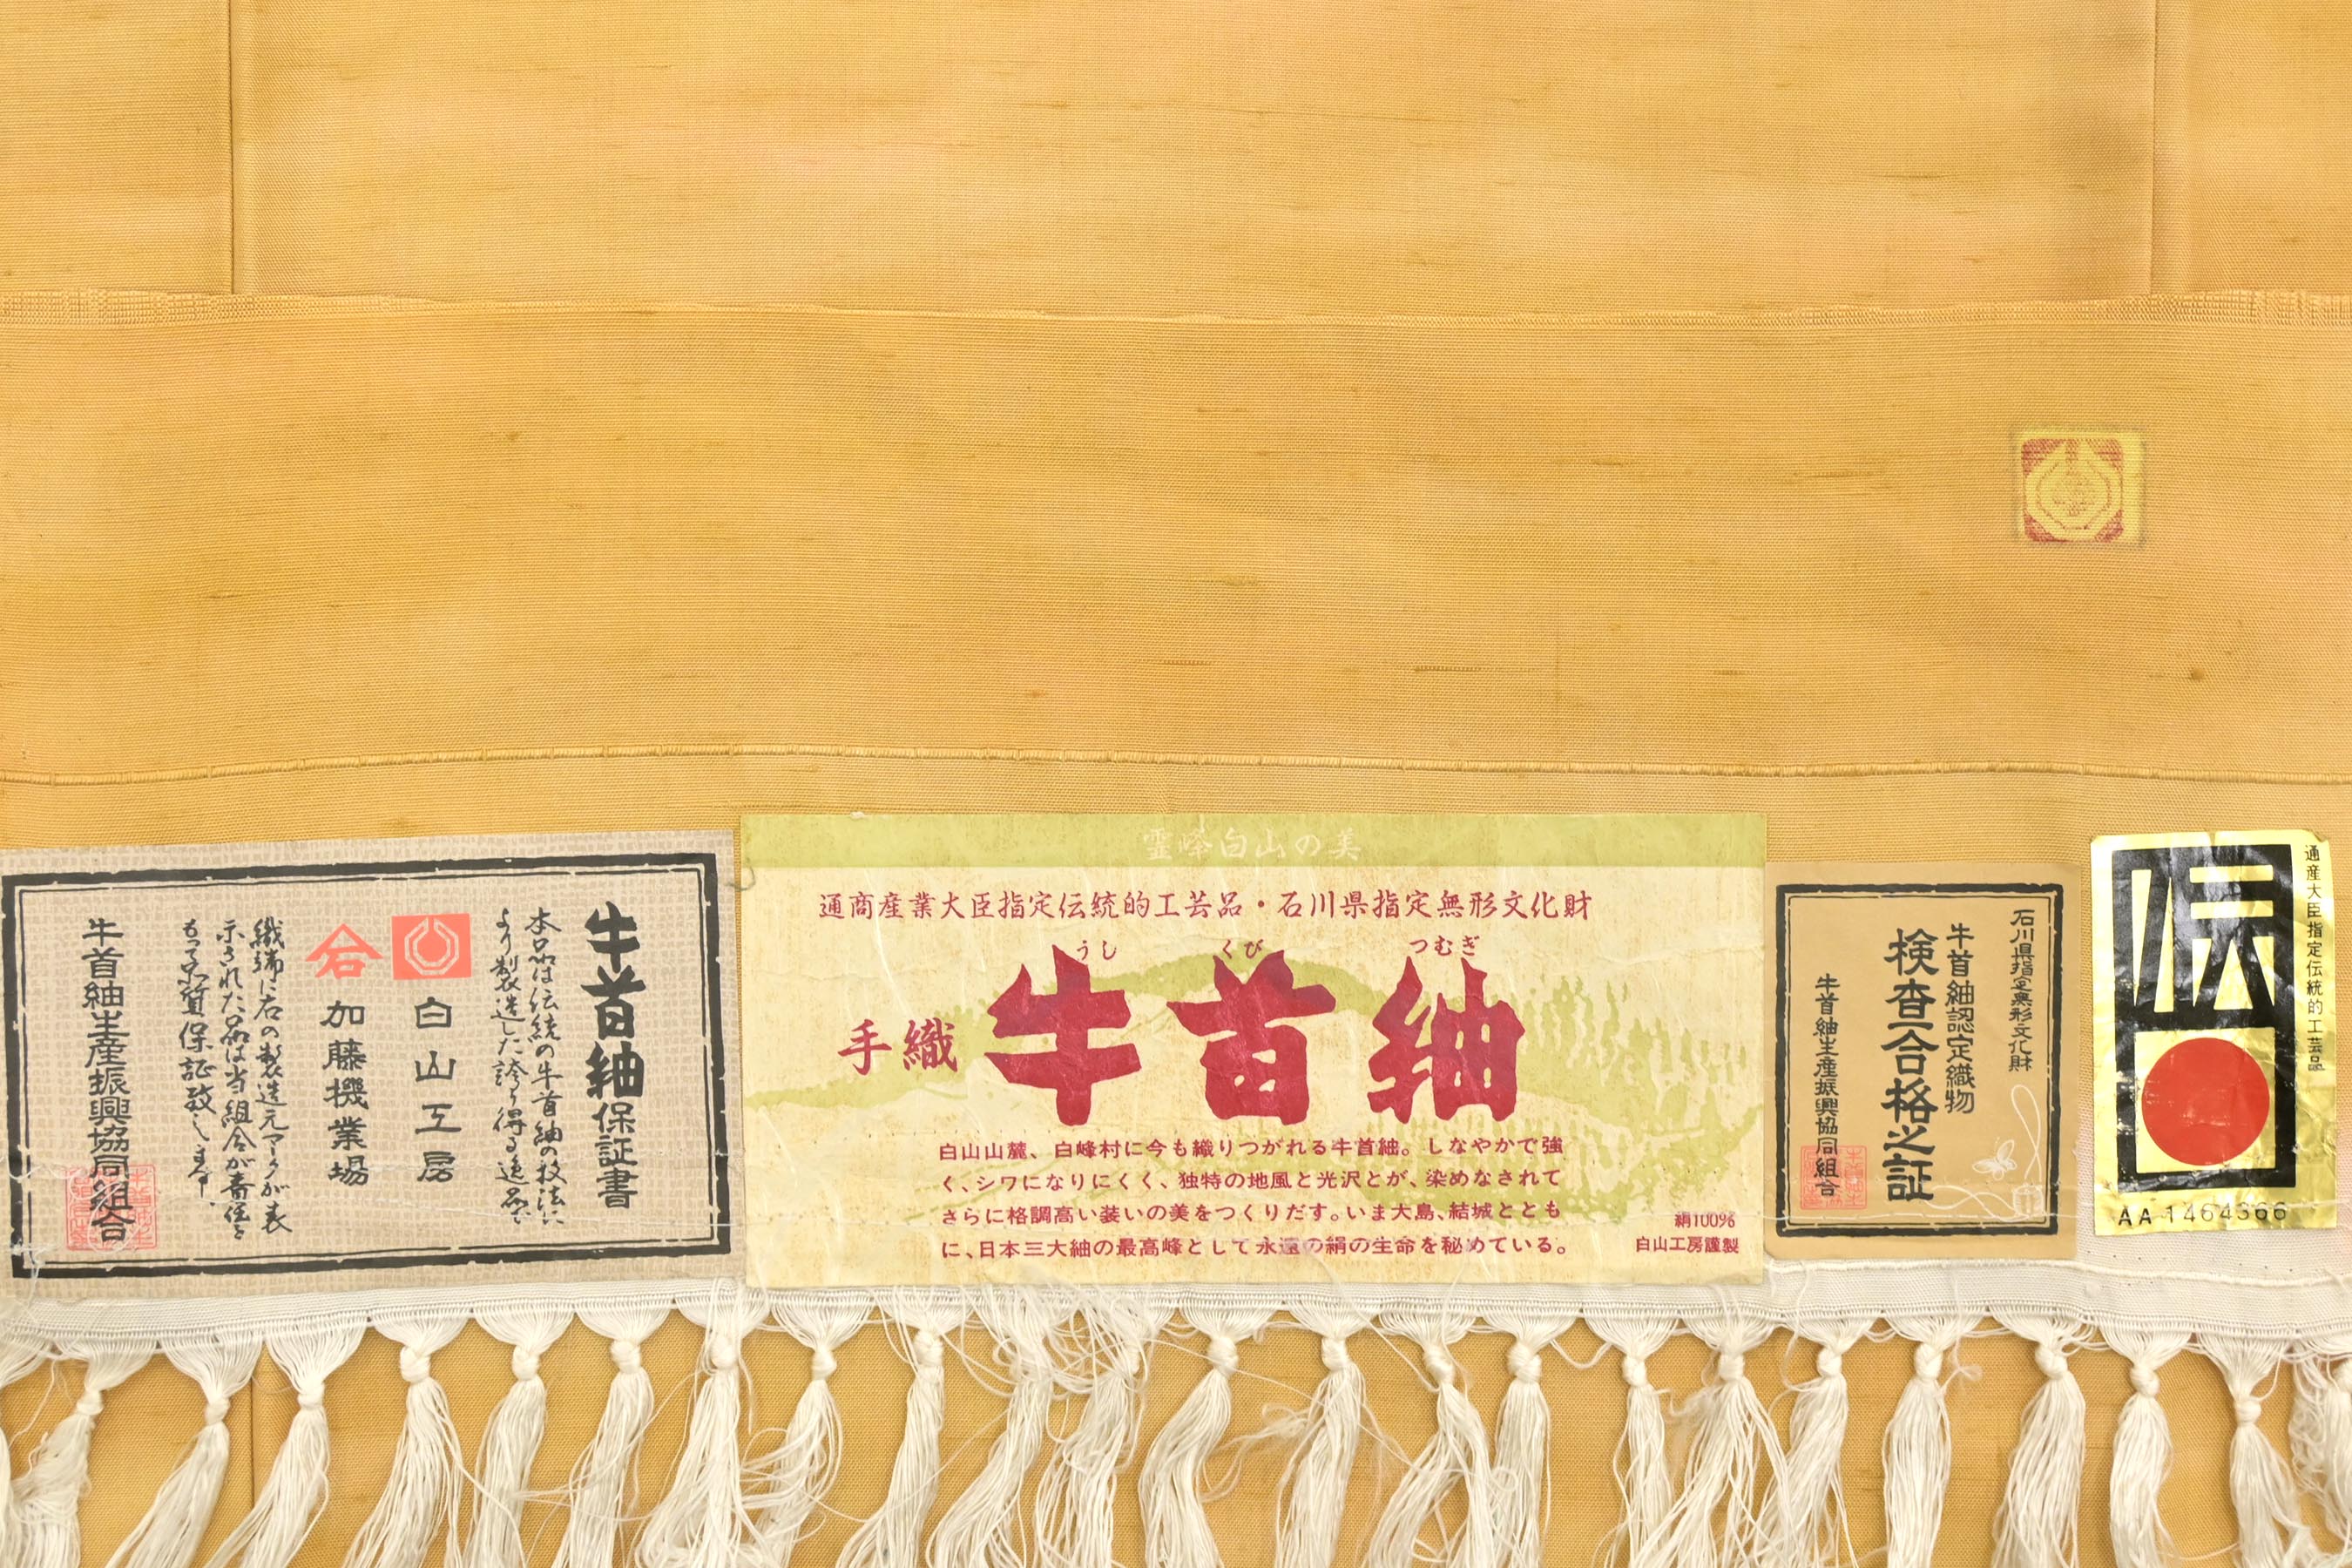 牛首紬保証書
本品は伝統の牛首紬の技法に
より製造した誇り得る逸品で
白山工房
加藤機業場
織端に右の製造元マークが表
示された品は当組合が責任を
もって品質保証致します。
牛首紬生産振興協同組合
霊峰白山の美
通商産業大臣指定伝統的工芸品・石川県指定無形文化財
うし くび つむぎ
手織 牛首紬
白山山麓、白峰村に今も織りつがれる牛首紬。しなやかで強
く、シワになりにくく、独特の地風と光沢とが、染めなされて
さらに格調高い装いの美をつくりだす。いま大島、結城ととも
に、日本三大紬の最高峰として永遠の絹の生命を秘めている。
絹100%
白山工房謹製
石川県指定無形文化財
牛首紬認定織物
検査合格之証
牛首紬生産振興協同組合
通産大臣指定伝統的工芸品
伝
AA 1464366